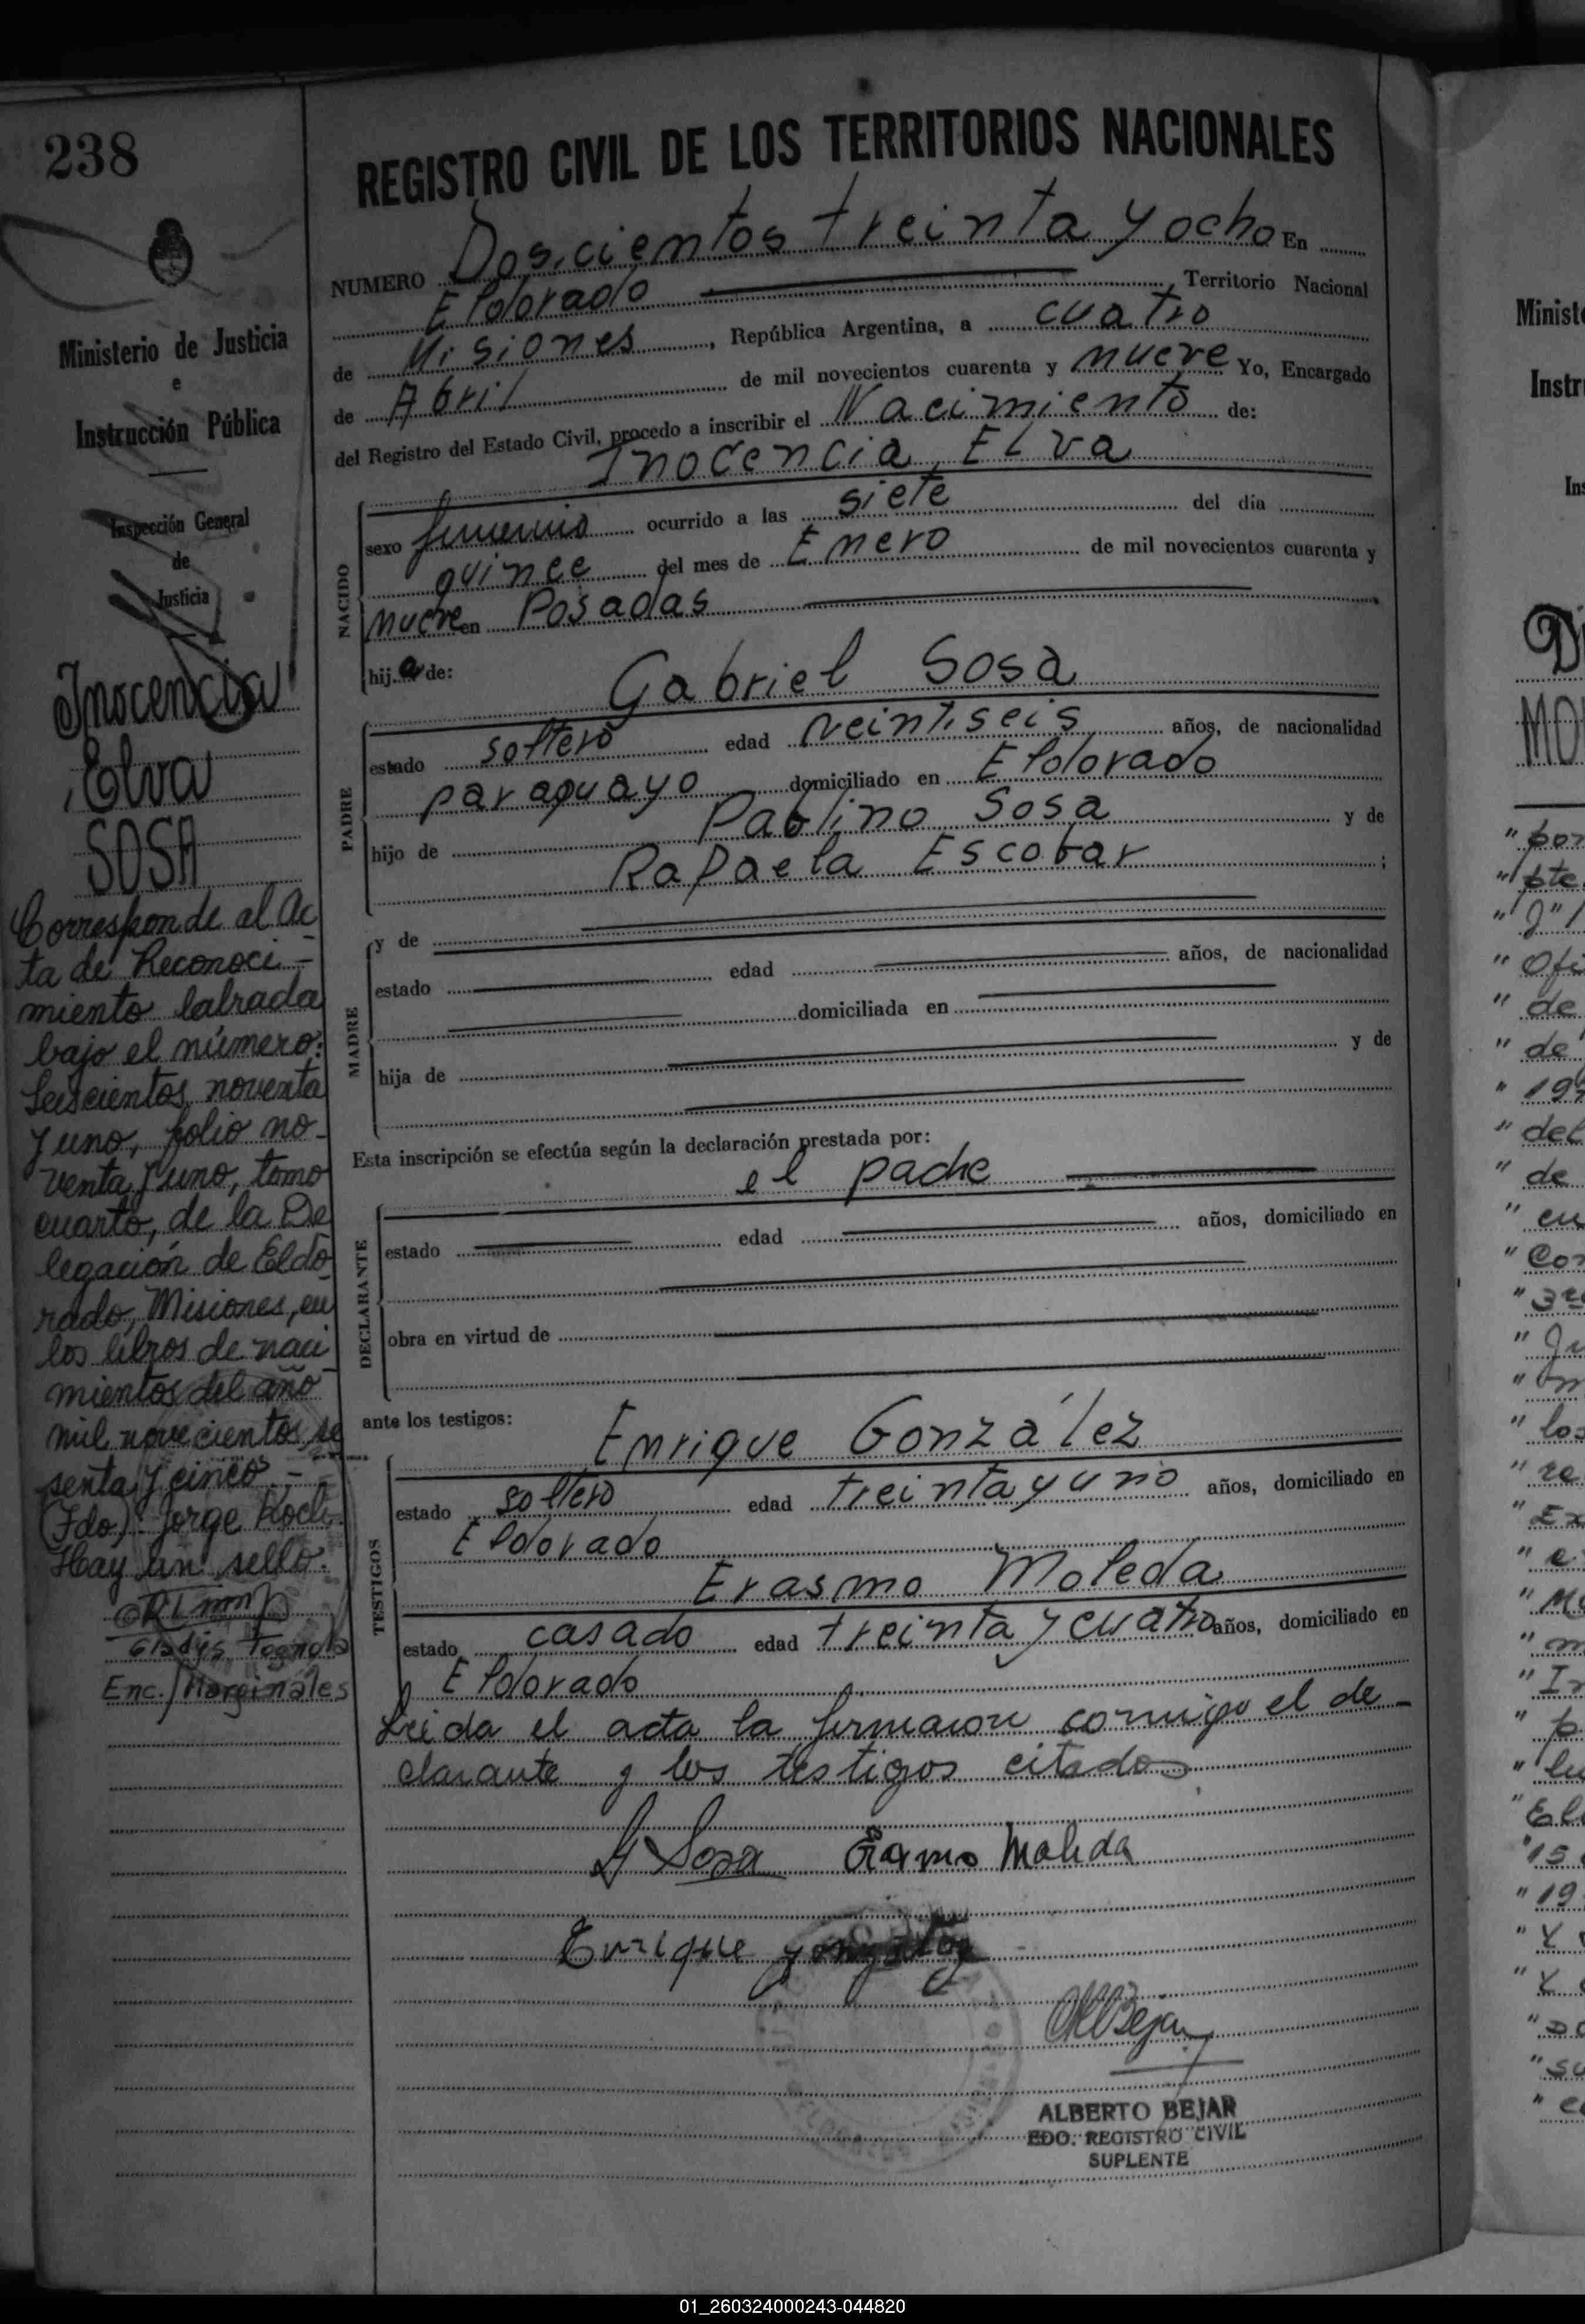 238
Ministerio de Justicia
e
Instrucción Pública
Inspección General
de
Justicia
Inocencia
Elva
SOSA
Corresponde al Ac
ta de Reconoci-
miento labrada
bajo el número:
Seiscientos noventa
y uno, folio no-
venta y uno, tomo
cuarto, de la De
legación de Eldo
rado, Misiones, en
los libros de naci
mientos del año
mil novecientos se
senta y cinco.-
(Fdo): Jorge Koch.
Hay un sello.
Gladys
Enc. Marginales
REGISTRO CIVIL DE LOS TERRITORIOS NACIONALES
NUMERO Doscientos treinta y ocho En
Eldorado, Territorio Nacional
de Misiones, República Argentina, a cuatro
de Abril de mil novecientos cuarenta y nueve Yo, Encargado
del Registro del Estado Civil, procedo a inscribir el Nacimiento de:
Inocencia Elva
NACIDO
sexo femenino ocurrido a las siete del día
quince del mes de Enero de mil novecientos cuarenta y
nueve en Posadas
hija de: Gabriel Sosa
PADRE
estado soltero edad veintiseis años, de nacionalidad
paraguayo domiciliado en Eldorado
hijo de Pablino Sosa y de
Rafaela Escobar;
MADRE
y de
estado edad años, de nacionalidad
domiciliada en
hija de y de
Esta inscripción se efectúa según la declaración prestada por:
el padre
DECLARANTE
estado edad años, domiciliado en
obra en virtud de
ante los testigos: Enrique González
TESTIGOS
estado soltero edad treinta y uno años, domiciliado en
Eldorado
Erasmo Moleda
estado casado edad treinta y cuatro años, domiciliado en
Eldorado
Leida el acta la firmaron conmigo el de-
clarante y los testigos citados
G Sosa Erasmo Moleda
Enrique Gonzalez
ABejar
ALBERTO BEJAR
EDO. REGISTRO CIVIL
SUPLENTE
01_260324000243-044820